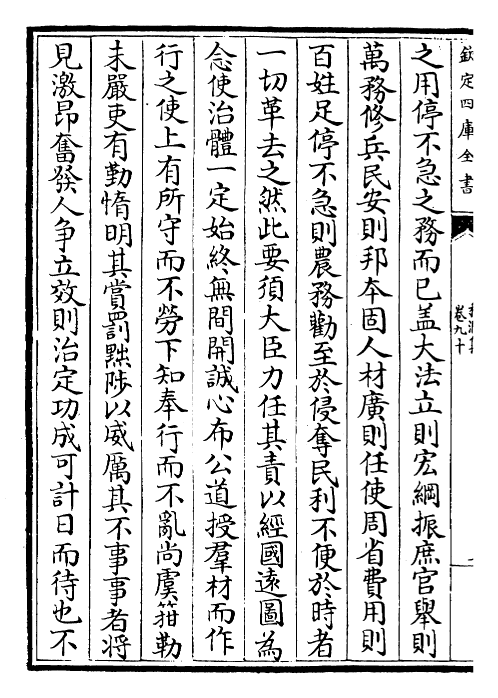 欽定四庫全書
卷九十
之用停不急之務而已盖大法立則宏綱振庶官舉則
萬務修兵民安則邦本固人材廣則任使周省費用則
百姓足停不急則農務勸至於侵奪民利不便於時者
一切革去之然此要須大臣力任其責以經國遠圖為
念使治體一定始終無間開誠心布公道授羣材而作
行之使上有所守而不勞下知奉行而不亂尚虞箝勒
未嚴吏有勤惰明其賞罰黜陟以威厲其不事事者將
見激昂奮發人争立效則治定功成可計日而待也不